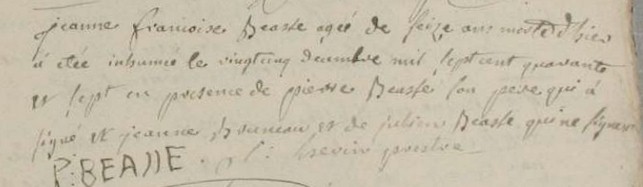 jeanne francoise Beasse agée de seize ans morte d'hier
a étée inhumée le vingtcinq decembre mil sept cent quarante
et sept en presence de pierre Beasse son pere qui a
signé et jeanne et de julien Beasse qui ne signent
P: BEASSE prestre